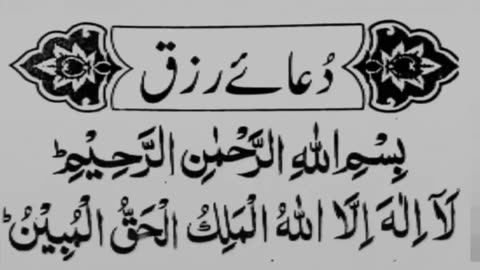 دُعائے رزق
بِسْمِ اللهِ الرَّحْمٰنِ الرَّحِيْمِ ؕ
لَآ اِلٰهَ اِلَّا اللهُ الْمَلِكُ الْحَقُّ الْمُبِيْنُ ؕ